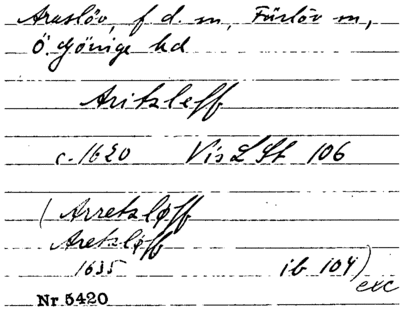 Araslöv, f. d. m, Färlöv m,
Ö. Göinge hd
Aritzleff
c. 1620 Vis L St 106
( Arretzløff
Aretzløff
1635 ib 104)
exc
Nr 5420